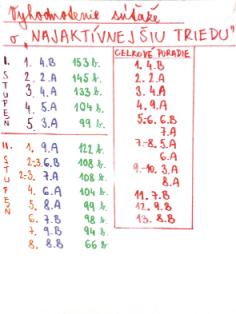 Vyhodnotenie súťaže
o „NAJAKTÍVNEJŠIU TRIEDU"
I. STUPEŇ
1. 4.B 153 b.
2. 2.A 145 b.
3. 4.A 133 b.
4. 5.A 104 b.
5. 3.A 99 b.
II. STUPEŇ
1. 9.A 122 b.
2.-3. 6.B 108 b.
2.-3. 7.A 108 b.
4. 6.A 104 b.
5. 8.A 99 b.
6. 7.B 98 b.
7. 9.B 94 b.
8. 8.B 66 b
CELKOVÉ PORADIE
1. 4.B
2. 2.A
3. 4.A
4. 9.A
5.-6. 6.B
7.A
7.-8. 5.A
6.A
9.-10. 3.A
8.A
11. 7.B
12. 9.B
13. 8.B